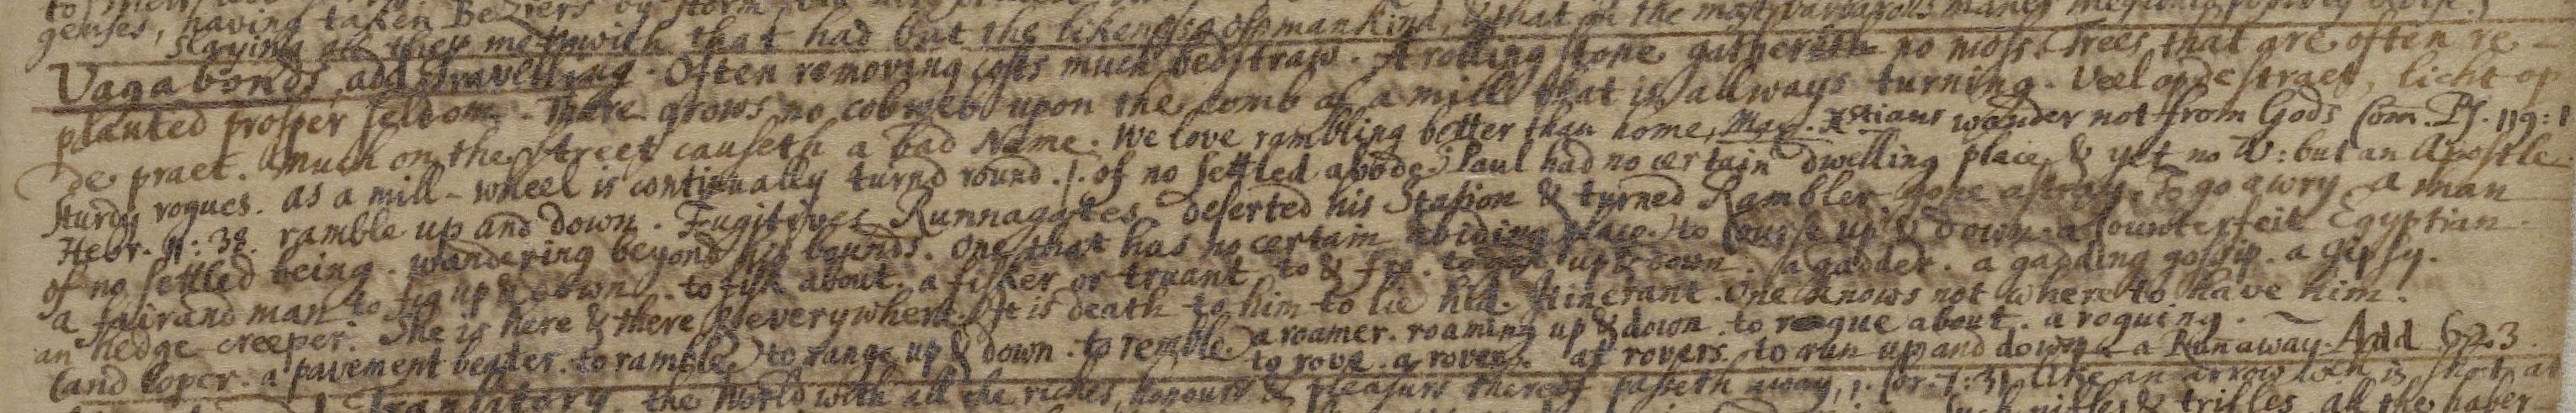 genses, having taken Beziers by storm
slaying all they met with that had but the likeness of mankind, & that in the most barbarous maner
Vagabonds, and Travelling. Often removing costs much bedstraw. A rolling stone gathereth no moss. Trees that are often re-
planted prosper seldom. There grows no cobweb upon the comb of a mill that is allways turning. Veel op de straet, licht op
de praet. Much on the street causeth a bad Name. We love rambling better than home, Xstians wander not from Gods Com. Ps. 119:
sturdy rogues. as a mill-wheel is continually turnd round. of no settled abode. Paul had no certain dwelling place, & yet no V: but an Apostle
Hebr. 11:38. ramble up and down. Fugitives Runnagates deserted his Station & turned Rambler gone astray. To go awry a man
of no settled being. wandering beyond his bounds. One that has no certain abiding place. to course up & down. a Counterfeit Egyptian.
a fairand man to fig up & down. to fisk about. a fisker or truant to & fro. up & down. a gadder. a gadding gossip. a gipsy.
an hedge creeper. She is here & there & everywhere. It is death to him to lie hid. Itinerant. One knows not where to have him.
land loper. a pavement beater. to ramble. to range up & down. to remble. a roamer. roaming up & down. to rogue about. a roguing.
to rove. a rover. at rovers. to run up and down. a Runaway. Add 623.
Transitory the World with all the riches, honours & pleasure thereof passeth away, 1. Cor. 7:31 like an arrow wch is shot at
trifles all the haber-